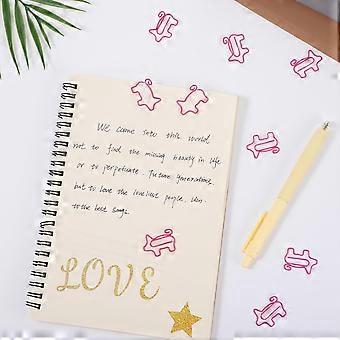 We come into this world
not to find the missing beauty in life
or to perpetuate. Future generations.
but to love the loveliest people. lisn
to the best songs.
LOVE